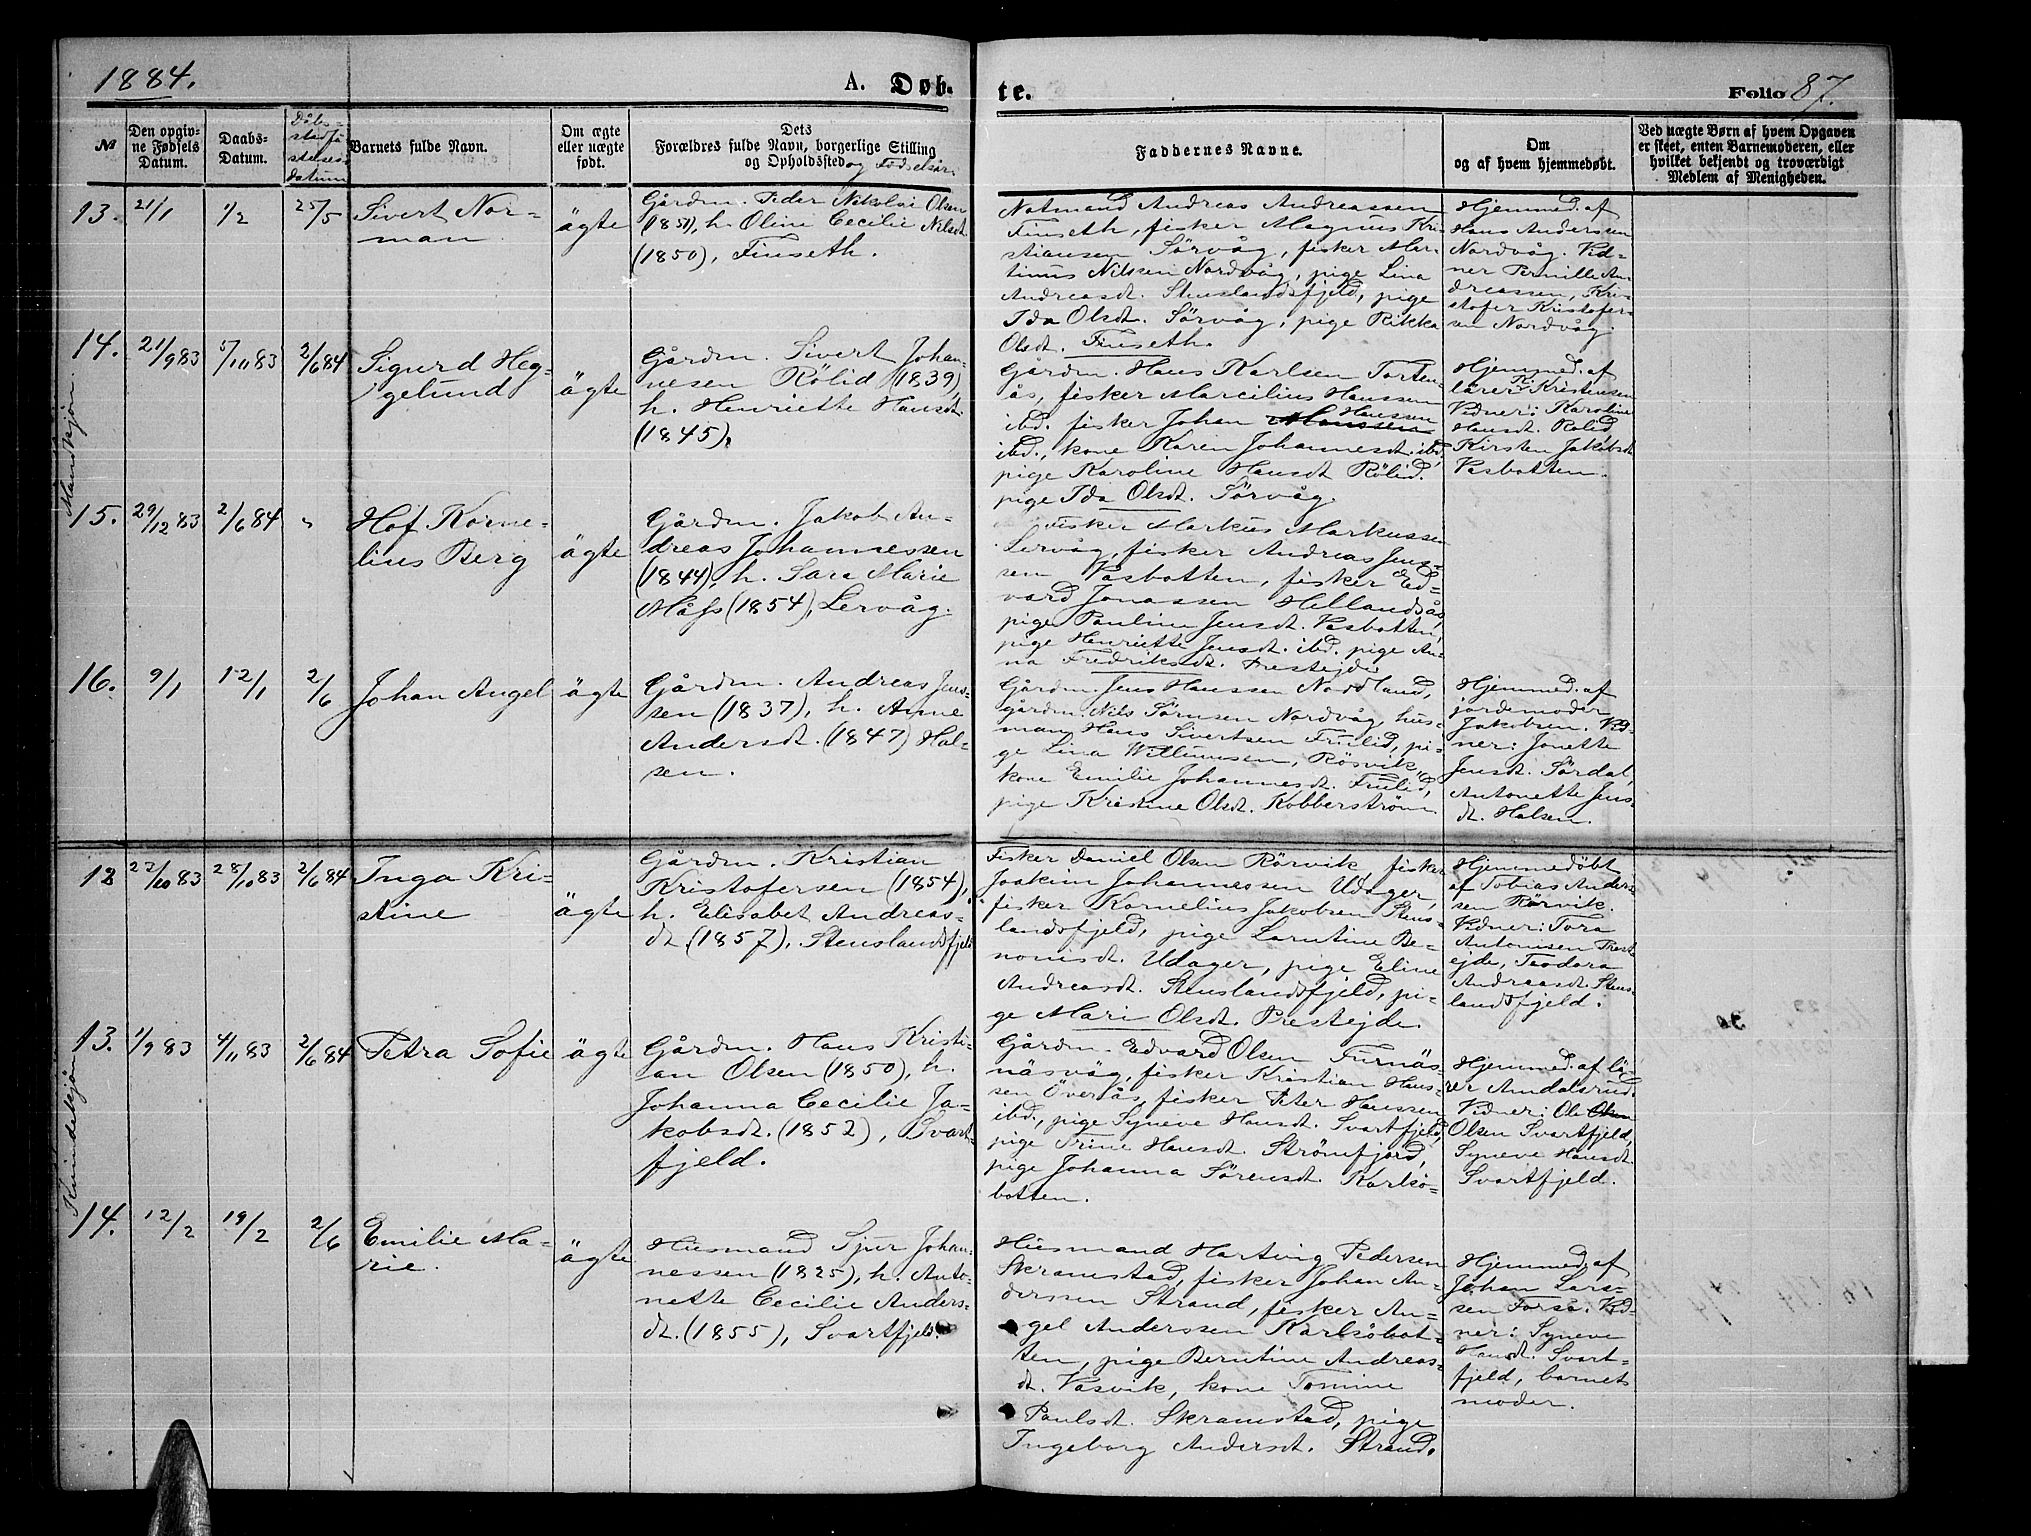 1884.
A. Døb-
te.
Folio 87.
№
Den opgiv-
ne Fødsels
Datum.
Daabs-
Datum.
Dåbs-
stadfæ-
stelses-
datum
Barnets fulde Navn.
Om ægte
eller uægte
født.
Dets
Forældres fulde Navn, borgerlige Stilling
og Opholdssted og Fødselsår.
Faddernes Navne.
Om
og af hvem hjemmedøbt.
Ved uægte Børn af hvem Opgaven
er skeet, enten Barnemoderen, eller
hvilket bekjendt og troværdigt
Medlem af Menigheden.
Mandkjøn.
13.
21/1
1/2
25/5
Sivert Nor-
man
ägte
Gårdm. Peder Nikolai Olsen
(1851), h. Oline Cecilie Nilsdt.
(1850), Finseth.
Notmand Andreas Andreassen
Finseth, fisker Magnus Kri-
stiansen Sörvåg, fisker Mar-
tinus Nilsen Nordvåg, pige Lina
Andreasdt. Stenslandsfjeld, pige
Ida Olsdt. Sörvåg, pige Rikka
Olsdt. Finseth.
Hjemmed. af
Hans Anderssen
Nordvåg. Vid-
ner Pernille An-
dreassen, Kri-
stofer Kristofer-
sen Nordvåg.
14.
21/9 83
5/11 83
2/6 84
Sigurd Heg-
gelund
ägte
Gårdm. Sivert Johan-
nesen Rölid (1839),
h. Henriette Hansdt.
(1845).
Gårdm. Hans Karlsen Torten-
ås, fisker Marcilius Hanssen
ibd. fisker Johan Hanssen
ibd., kone Karen Johannesdt. ibd.
pige Karoline Hansdt Rölid.
pige Ida Olsdt. Sörvåg.
Hjemmed. af
lärer Kristensen
Vidner: Karoline
Hansdt. Rölid
Kirsten Jakobsdt.
Vasbotten.
15.
29/12 83
2/6 84
"
Hof Korne-
lius Berg
ägte
Gårdm. Jakob An-
dreas Johannessen
(1844), h. Sara Marie
Måss (1854), Lervåg.
Fisker Markus Markussen
Lervåg, fisker Andreas Jens-
sen Vasbotten, fisker Ed-
vard Jonassen Hellandsås,
pige Pauline Jensdt. Vasbotten,
pige Henriette Jensdt. ibd. pige An-
na Fredriksdt. Prestejde
16.
9/1
12/1
2/6
Johan Angel
ägte
Gårdm. Andreas Jens-
sen (1837), h. Anne
Andersdt. (1847) Hal-
sen.
Gårdm. Jens Hanssen Nordland,
gårdm. Nils Sörensen Nordvåg, hus-
man Hans Sivertsen Frulid, pi-
ge Lina Willumsen, Rösvik,
kone Emilie Johannesdt. Frulid,
pige Kristine Olsdt. Kobberström
Hjemmed. af
jordemoder
Jakobsen. Vid-
ner: Jonette
Jensdt. Sördal,
Antonette Jens-
dt. Halsen.
Kvindekjön
12
22/10 83
28/10 83
2/6 84
Inga Kri-
stine
ägte
Gårdm. Kristian
Kristofersen (1854),
h. Elisabet Andreas-
dt. (1857), Stenslandsfjeld
Fisker Daniel Olsen Rörvik fisker
Joakim Johannessen Udager,
fisker Kornelius Jakobsen Stens-
landsfjeld, pige Larntine Be-
nonisdt. Udager, pige Eline
Andreasdt. Stenslandsfjeld, pi-
ge Mari Olsdt. Prestejde.
Hjemmedöbt
af Tobias Ander-
sen Rörvik.
Vidner: Tora
Antonisen Prest-
ejde, Teodora
Andreasdt. Stens-
landsfjeld.
13.
1/9 83
4/11 83
2/6 84
Petra Sofie
ägte
Gårdm. Hans Kristi-
an Olsen (1850), h.
Johanna Cecilie Ja-
kobsdt. (1852), Svart-
fjeld.
Gårdm. Edvard Olsen Furnäs-
näsvåg, fisker Kristian Hans-
sen Överås, fisker Peter Hanssen
ibd., pige Syneve Hansdt. Svartfjeld,
pige Trine Hansdt. Strömfjord,
pige Johanna Sörensdt. Karlsö-
botten.
Hjemmed. af lä-
rer Andalsrud.
Vidner: Ole Olsen
Olsen Svartfjeld,
Syneve Hansdt.
Svartfjeld.
14.
12/2
19/2
2/6
Emilie Ma-
rie.
ägte
Husmand Sjur Johan-
nessen (1825), h. Anto-
nette Cecilie Anders-
dt. (1855), Svartfjeld.
Husmand Hartvig Pedersen
Skramstad, fisker Johan An-
derssen Strand, fisker An-
gel Anderssen Karlsöbot-
ten, pige Berntine Andreas-
dt. Vasvik, kone Tomine
Paulsdt. Skramstad, pige
Ingeborg Andersdt. Strand.
Hjemmed. af
Johan Lars-
sen Forså. Vid-
ner: Syneve
Hansdt. Svart-
fjeld, barnets
moder.